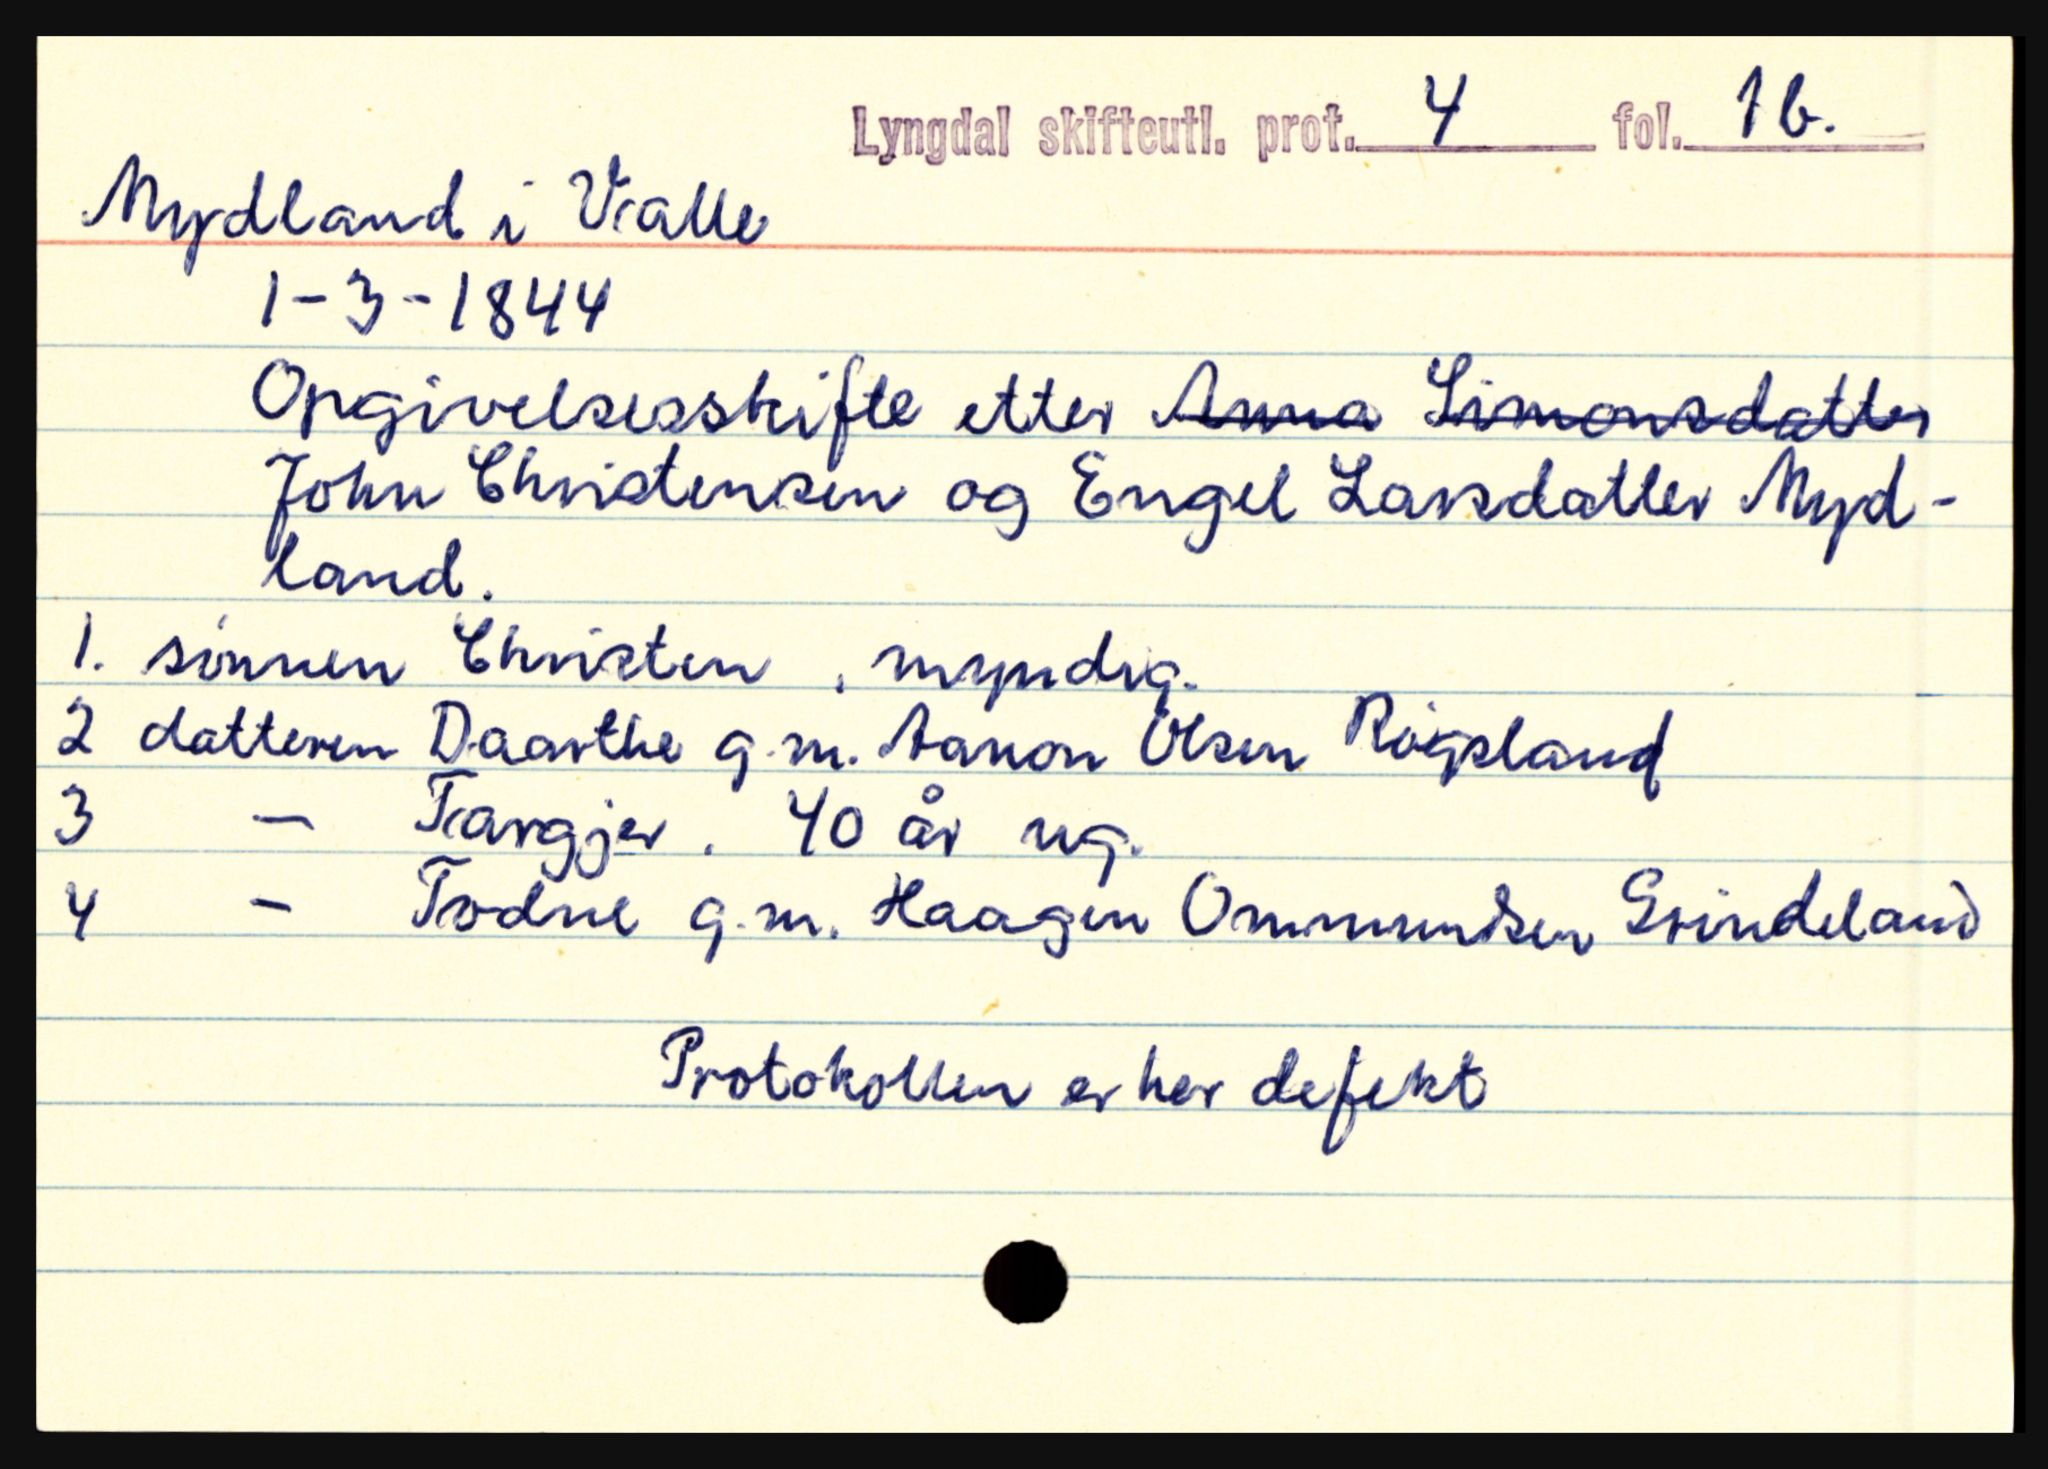 Lyngdal skifteutl. prot. 4 fol. 1b.
Mydland i Valle
1-3-1844
Opgivelsesskifte etter Anna Simonsdatter
John Christensen og Engel Larsdatter Myd-
land.
1. sønnen Christen , myndig.
2 datteren Daarthe g.m. Aanon Olsen Røgsland
3 — Targjer . 40 år ug.
4 - Todne g.m. Haagen Ommundsen Grindeland
Protokollen er her defekt